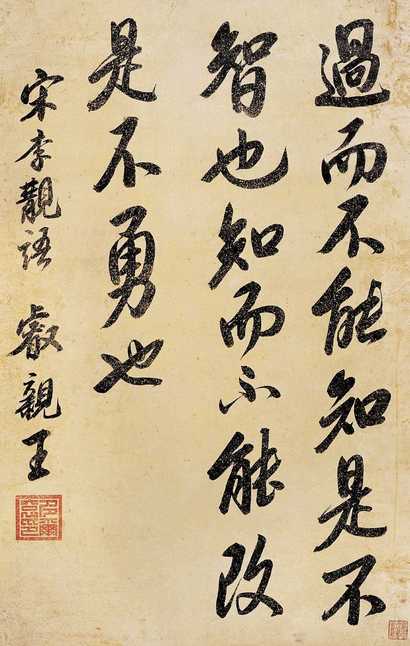 過而不能知是不
智也知而不能改
是不勇也
宋李觏語 叡親王